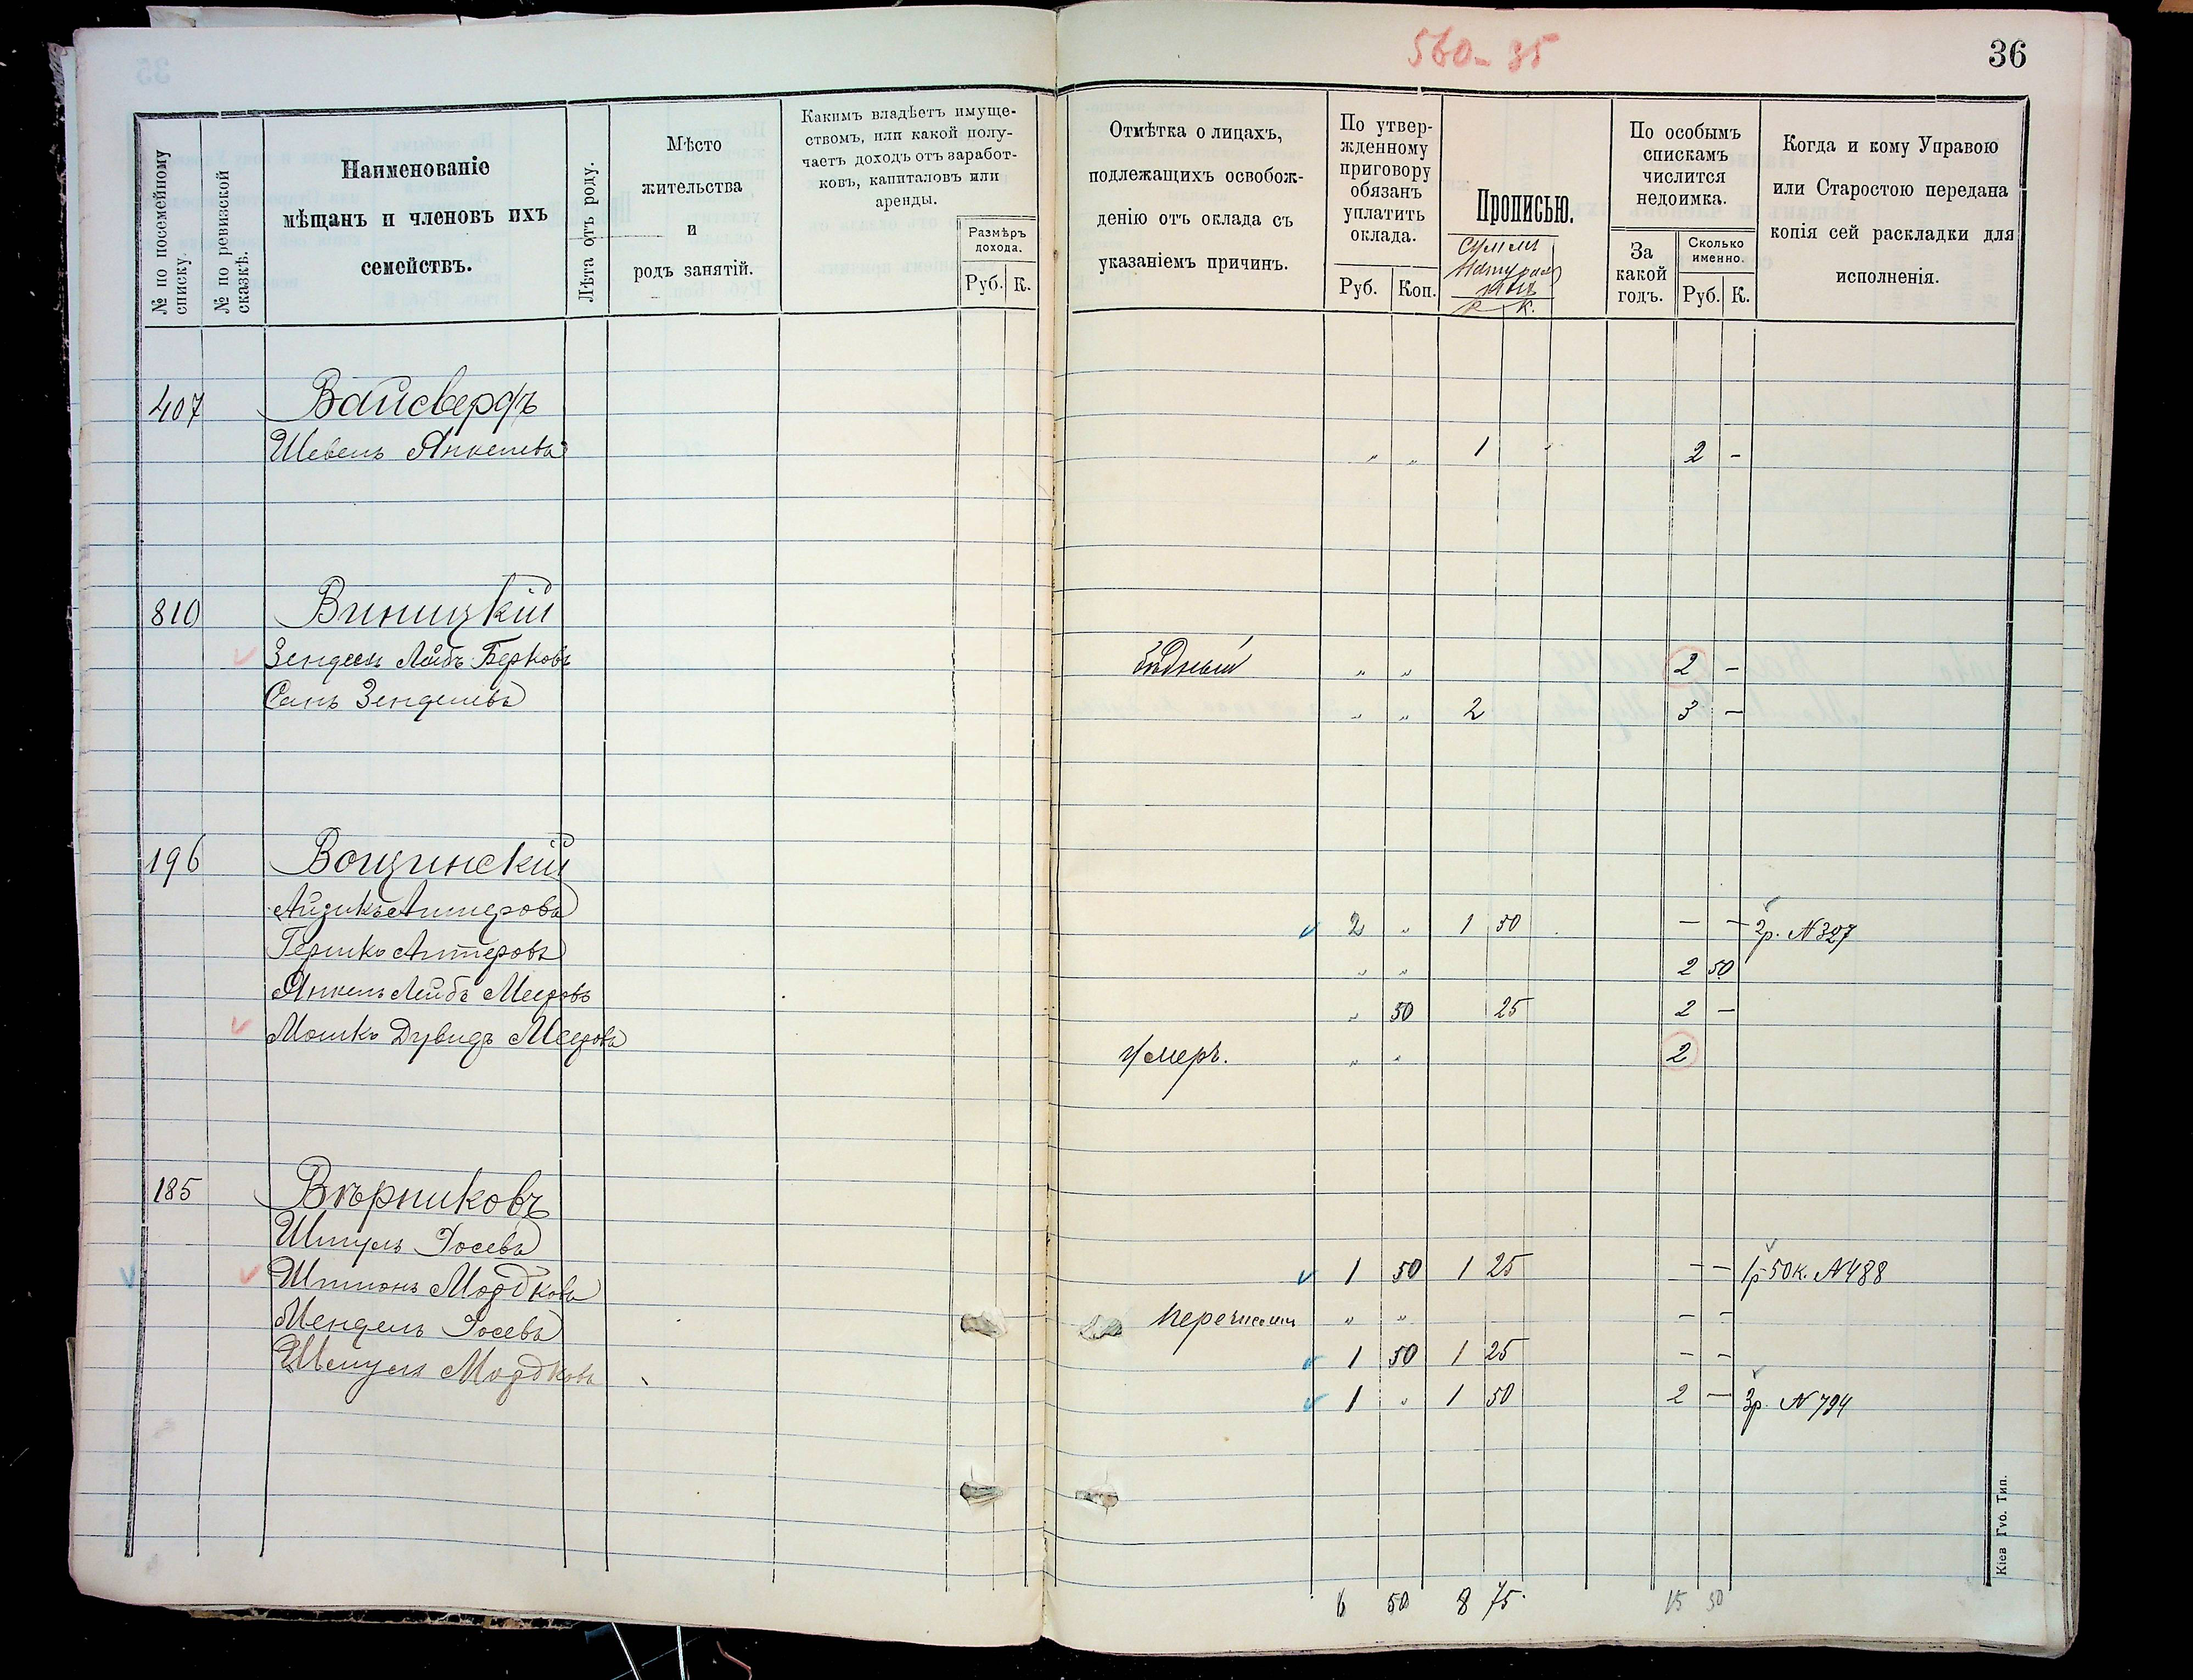 560-85
36
№ по посемейному списку.
№ по ревизской сказкѣ.
Наименованіе
мѣщанъ и членовъ ихъ
семействъ.
Лѣта отъ роду.
Мѣсто
жительства
и
родъ занятій.
Какимъ владѣетъ имуще-
ствомъ, или какой полу-
чаетъ доходъ отъ заработ-
ковъ, капиталовъ или
аренды.
Размѣръ
дохода.
Руб. К.
Отмѣтка о лицахъ,
подлежащихъ освобож-
денію отъ оклада съ
указаніемъ причинъ.
По утвер-
жденному
приговору
обязанъ
уплатить
оклада.
Руб. Коп.
Прописью.
Р. К.
По особымъ
спискамъ
числится
недоимка.
За
какой
годъ.
Сколько
именно.
Руб. К.
Когда и кому Управою
или Старостою передана
копія сей раскладки для
исполненія.
407 Вайсверфъ
Шевель Янкелевъ " " 1 " 2 -
810 Виницкій
Зендель Лейбъ Берковъ бѣдный " " 2 -
Сань Зенделевъ " " 2 3 -
196 Вощинскій
Айзикъ Антеровъ 2 " 1 50 - - 2р. N 327
Гершко Антеровъ " " 2 50
Янкель Лейбъ Мееровъ " 50 25 2 -
Мошко Дувидъ Мееровъ Умеръ. " " 2
185 Вѣрниковъ
Шмуль Іосевъ 1 50 1 25 - - 1р-50к. N 488
Мордковъ перечислен " " - -
Мендель Іосевъ 1 50 1 25 - -
Мордковъ 1 " 1 50 2 - 3р. N 794
6 50 8 75 15 50
Кіев Губ. Тип.